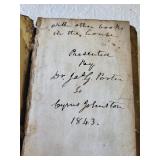 with other books
in the house.
Presented
By
Dr Jas G. Porter
to
Cyrus Johnston
1843.